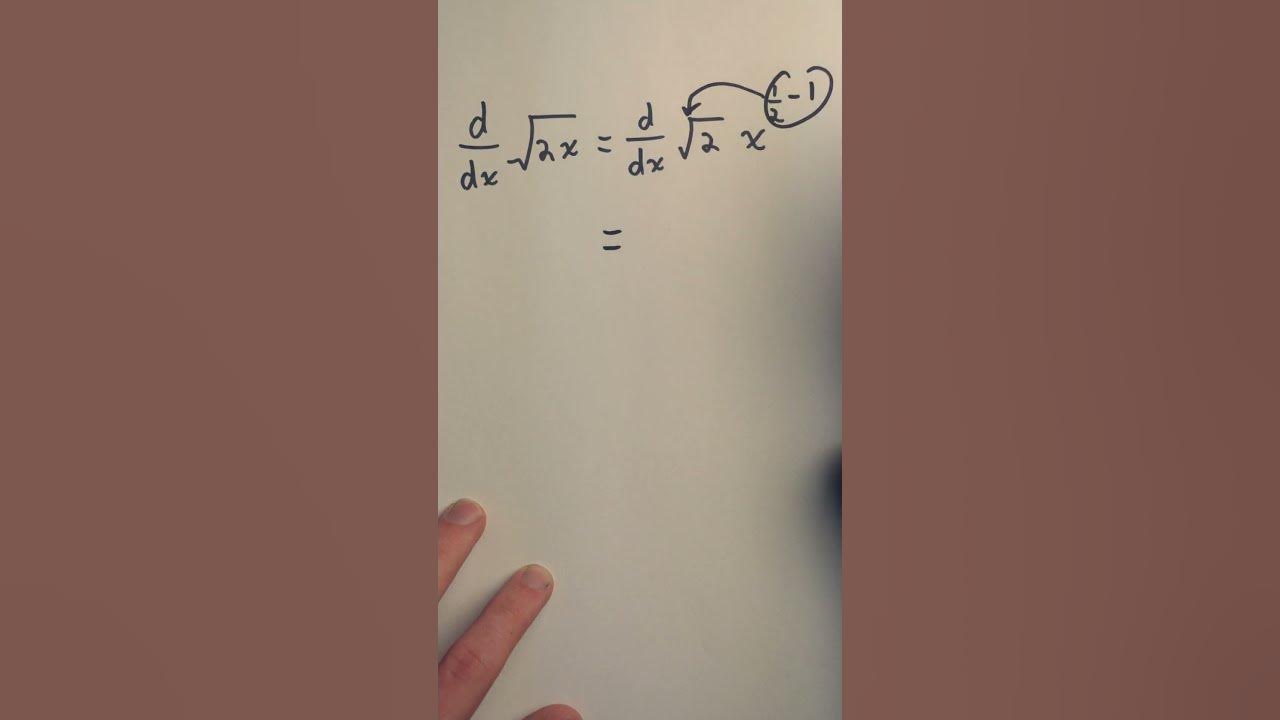 d/dx √2x = d/dx √2 x^(1/2 - 1)
=